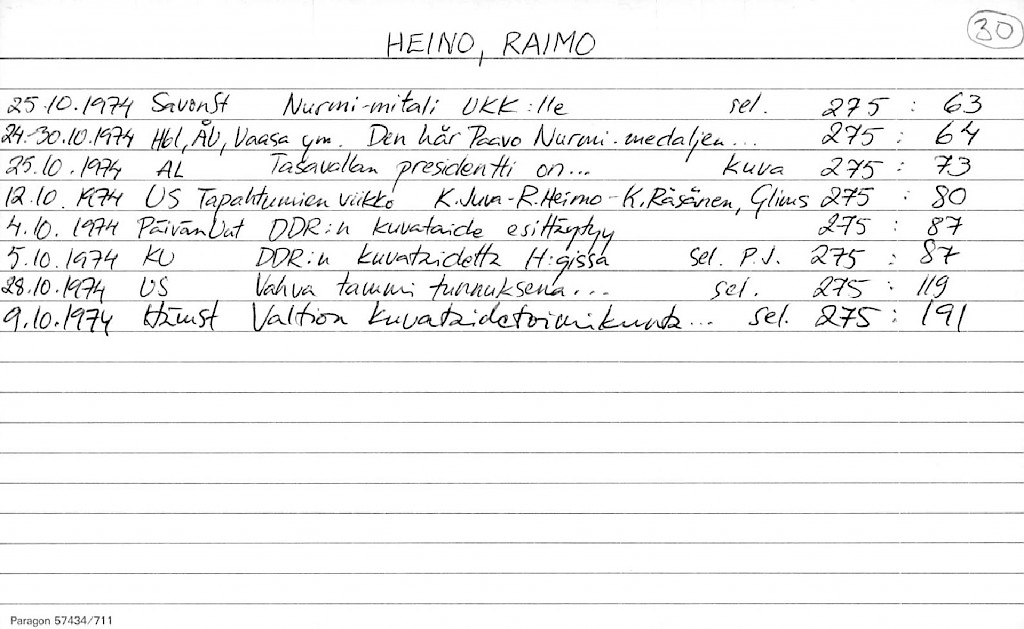 30
HEINO, RAIMO
25.10.1974 SavonSt Nurmi-mitali UKK:lle sel. 275 : 63
24.-30.10.1974 Hbl, ÅU, Vaasa ym. Den här Paavo Nurmi-medaljen... 275 : 64
25.10.1974 AL Tasavallan presidentti on... kuva 275 : 73
12.10.1974 US Tapahtumien viikko K.Juva-R.Heino-K.Räsänen, Glims 275 : 80
4.10.1974 PäivänUut DDR:n kuvataide esittäytyy 275 : 87
5.10.1974 KU DDR:n kuvataidetta H:gissä sel. P.J. 275 : 87
28.10.1974 US Vahva tammi tunnuksena... sel. 275 : 119
9.10.1974 HämSt Valtion kuvataidetoimikunta... sel. 275 : 191
Paragon 57434/711